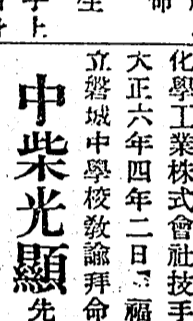 化學工業株式會社技手
大正六年四年二日福
立磐城中學校敎諭拜命
中柴光顯 先
命
生
上